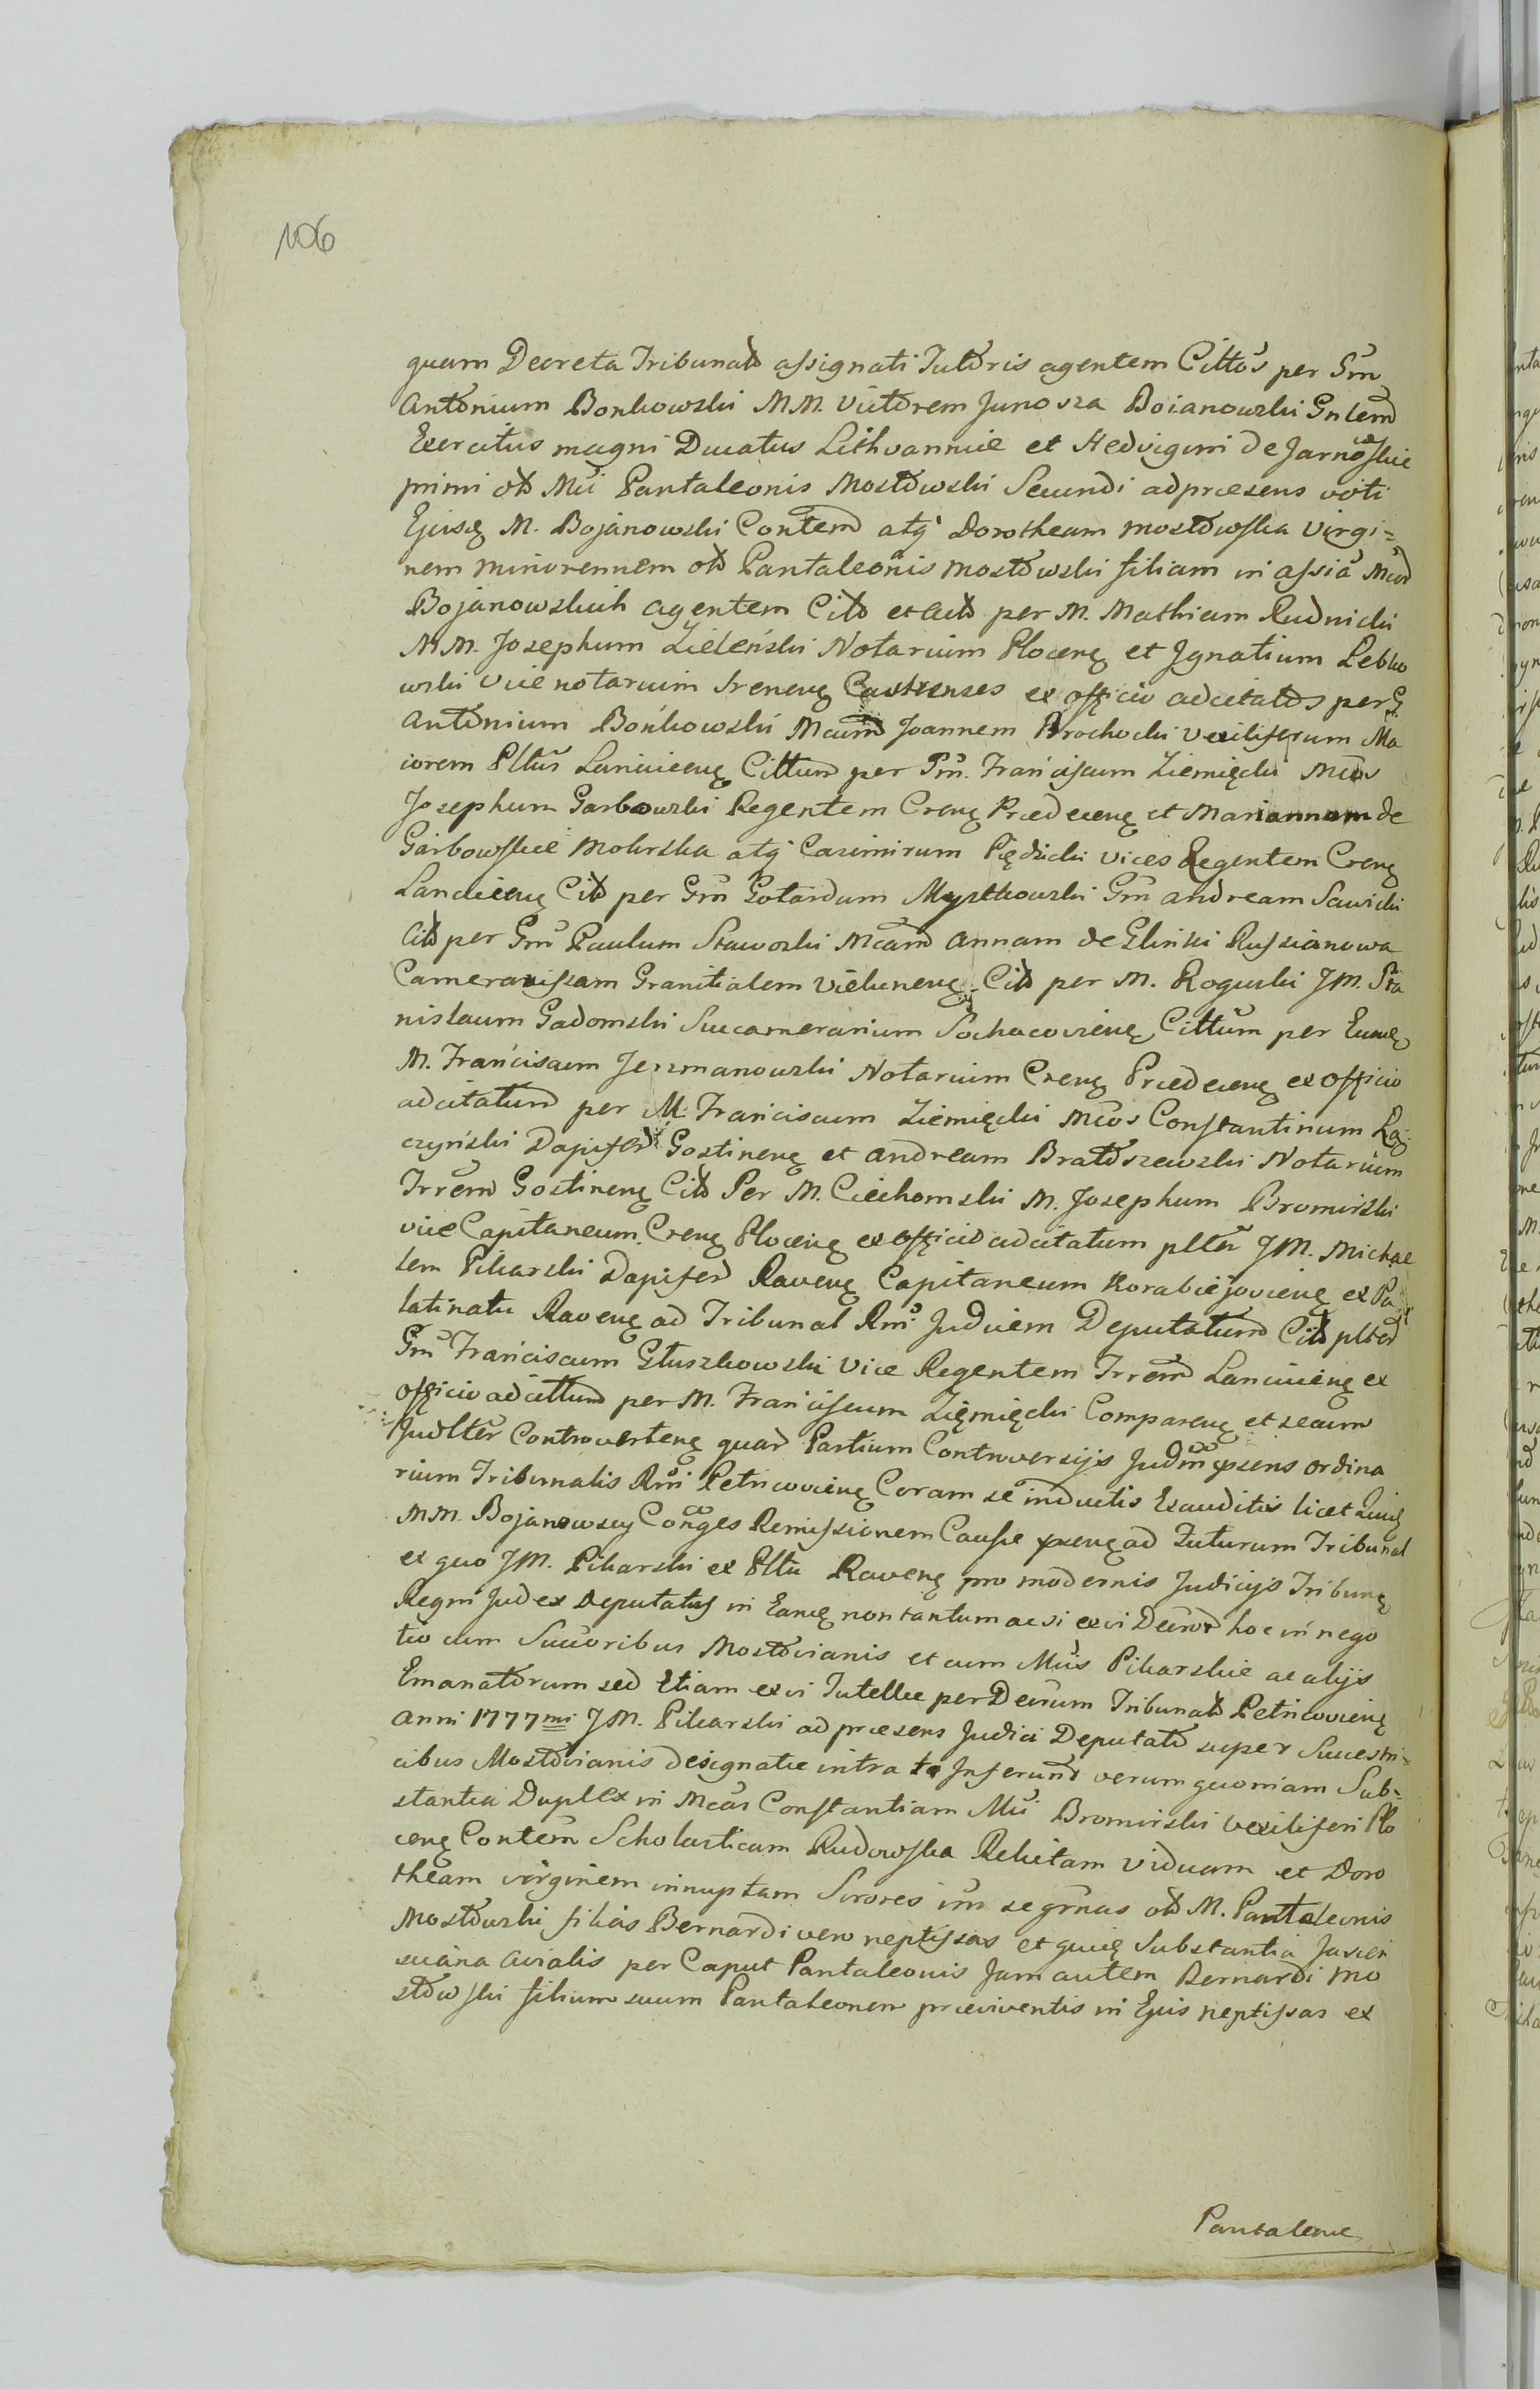 106
quam Decreta Tribunalb assignati Tutoris agentem Cittos per Gm
Antonium Bonkowski MM. Victorem Junosza Boianowski Gnlem
Exercitus magni Ducatus Lithvanniæ et Hedvigim de Jarnoskie
primi olb Mci Pantaleonis Mostowski Secundi adpræsens voti
Ejusq M. Bojanowski Contem atq Dorotheam Mostowska Virgi=
nem minorennem olb Pantaleonis Mostowski filiam in assia Mcor
Bojanowskich agentem Citb et Actb per M. Mathiam Rudnicki
MM. Josephum Zielenski Notarium Ploceng et Jgnatium Lebko
wski Vice notarium Sreneng Castrenses ex officio adcitatos per G.
Antonium Bońkowski Mcum Joannem Brochocki Vexiliferum Ma
iorem Pltus Lancicieng Cittum per Gm. Franciscum Ziemięcki Mcos
Josephum Garbowski Regentem Creng Prædeceng et Mariannam de
Garbowskie Mokrska atq Casimirum Piędzicki vices Regentem Creng
Lancicieng Citb per Gm Gotardum Mystkowski Gm Andream Sawicki
Citb per Gm Paulum Staworski Mcam Annam de Glinki Russianowa
Camerarissam Granitialem Vieluneng Citb per M. Roguski JM. Sta
nislaum Gadomski Succamerarium Sochacovieng Cittum per Eunq
M. Franciscum Jerzmanowski Notarium Creng Prædeceng ex officio
adcitatum per M: Franciscum Ziemięcki Mcos Constantinum Łą=
czyński Dapiferb Gostineng et Andream Bratoszewski Notarium
Trrem Gostineng Citb Per M. Ciechomski M. Josephum Bromirski
vice Capitaneum Creng Ploceng ex officio adcitatum plter JM. Michae
lem Pikarski Dapiferb Raveng Capitaneum Korabiejovieng ex Pa
latinatu Raveng ad Tribunal Rni Judicem Deputatum Citb plter
Gm Franciscum Głuszkowski Vice Regentem Trrem Lancicieng ex
officio adcittum per M. Franciscum Ziemięcki Compareng et secum
Judlter Controverteng quar Partium Controversijs Judm præsens ordina
rium Tribunalis Rni Petricovieng Coram se inductis Exauditis licet
MM. Bojanowscy Conges Remissionem Causæ præseng ad Futurum Tribunal
ex quo JM. Pikarski ex Pltu Raveng pro modernis Judicijs Tribung
Regni Judex Deputatus in Eamq non tantum ac si ex vi Decror hoc in nego
tio cum Succoribus Mostovianis et cum Mcis Pikarskie ac alijs
Emanatorum sed Etiam ex vi Tutellæ per Decrum Tribunalb Petricovieng
Anni 1777mi JM. Pikarski ad præsens Judici Deputato super Succestri=
cibus Mostovianis designatæ intra to Inferunt verum quoniam Sub=
stantia Duplex in Mcas Constantiam Mci Bromirski Vexiliferi Plo
ceng Contem Scholasticam Rudowska Relictam Viduam et Doro
theam virginem innuptam Sorores inr se grnas olb M. Pantaleonis
Mostowski filias Bernardi vero neptissas et quiq Substantia
avialis per Caput Pantaleonis Jam autem Bernardi Mo
stowski filium suum Pantaleonem præviventis in Ejus neptissas ex
Pantaleone